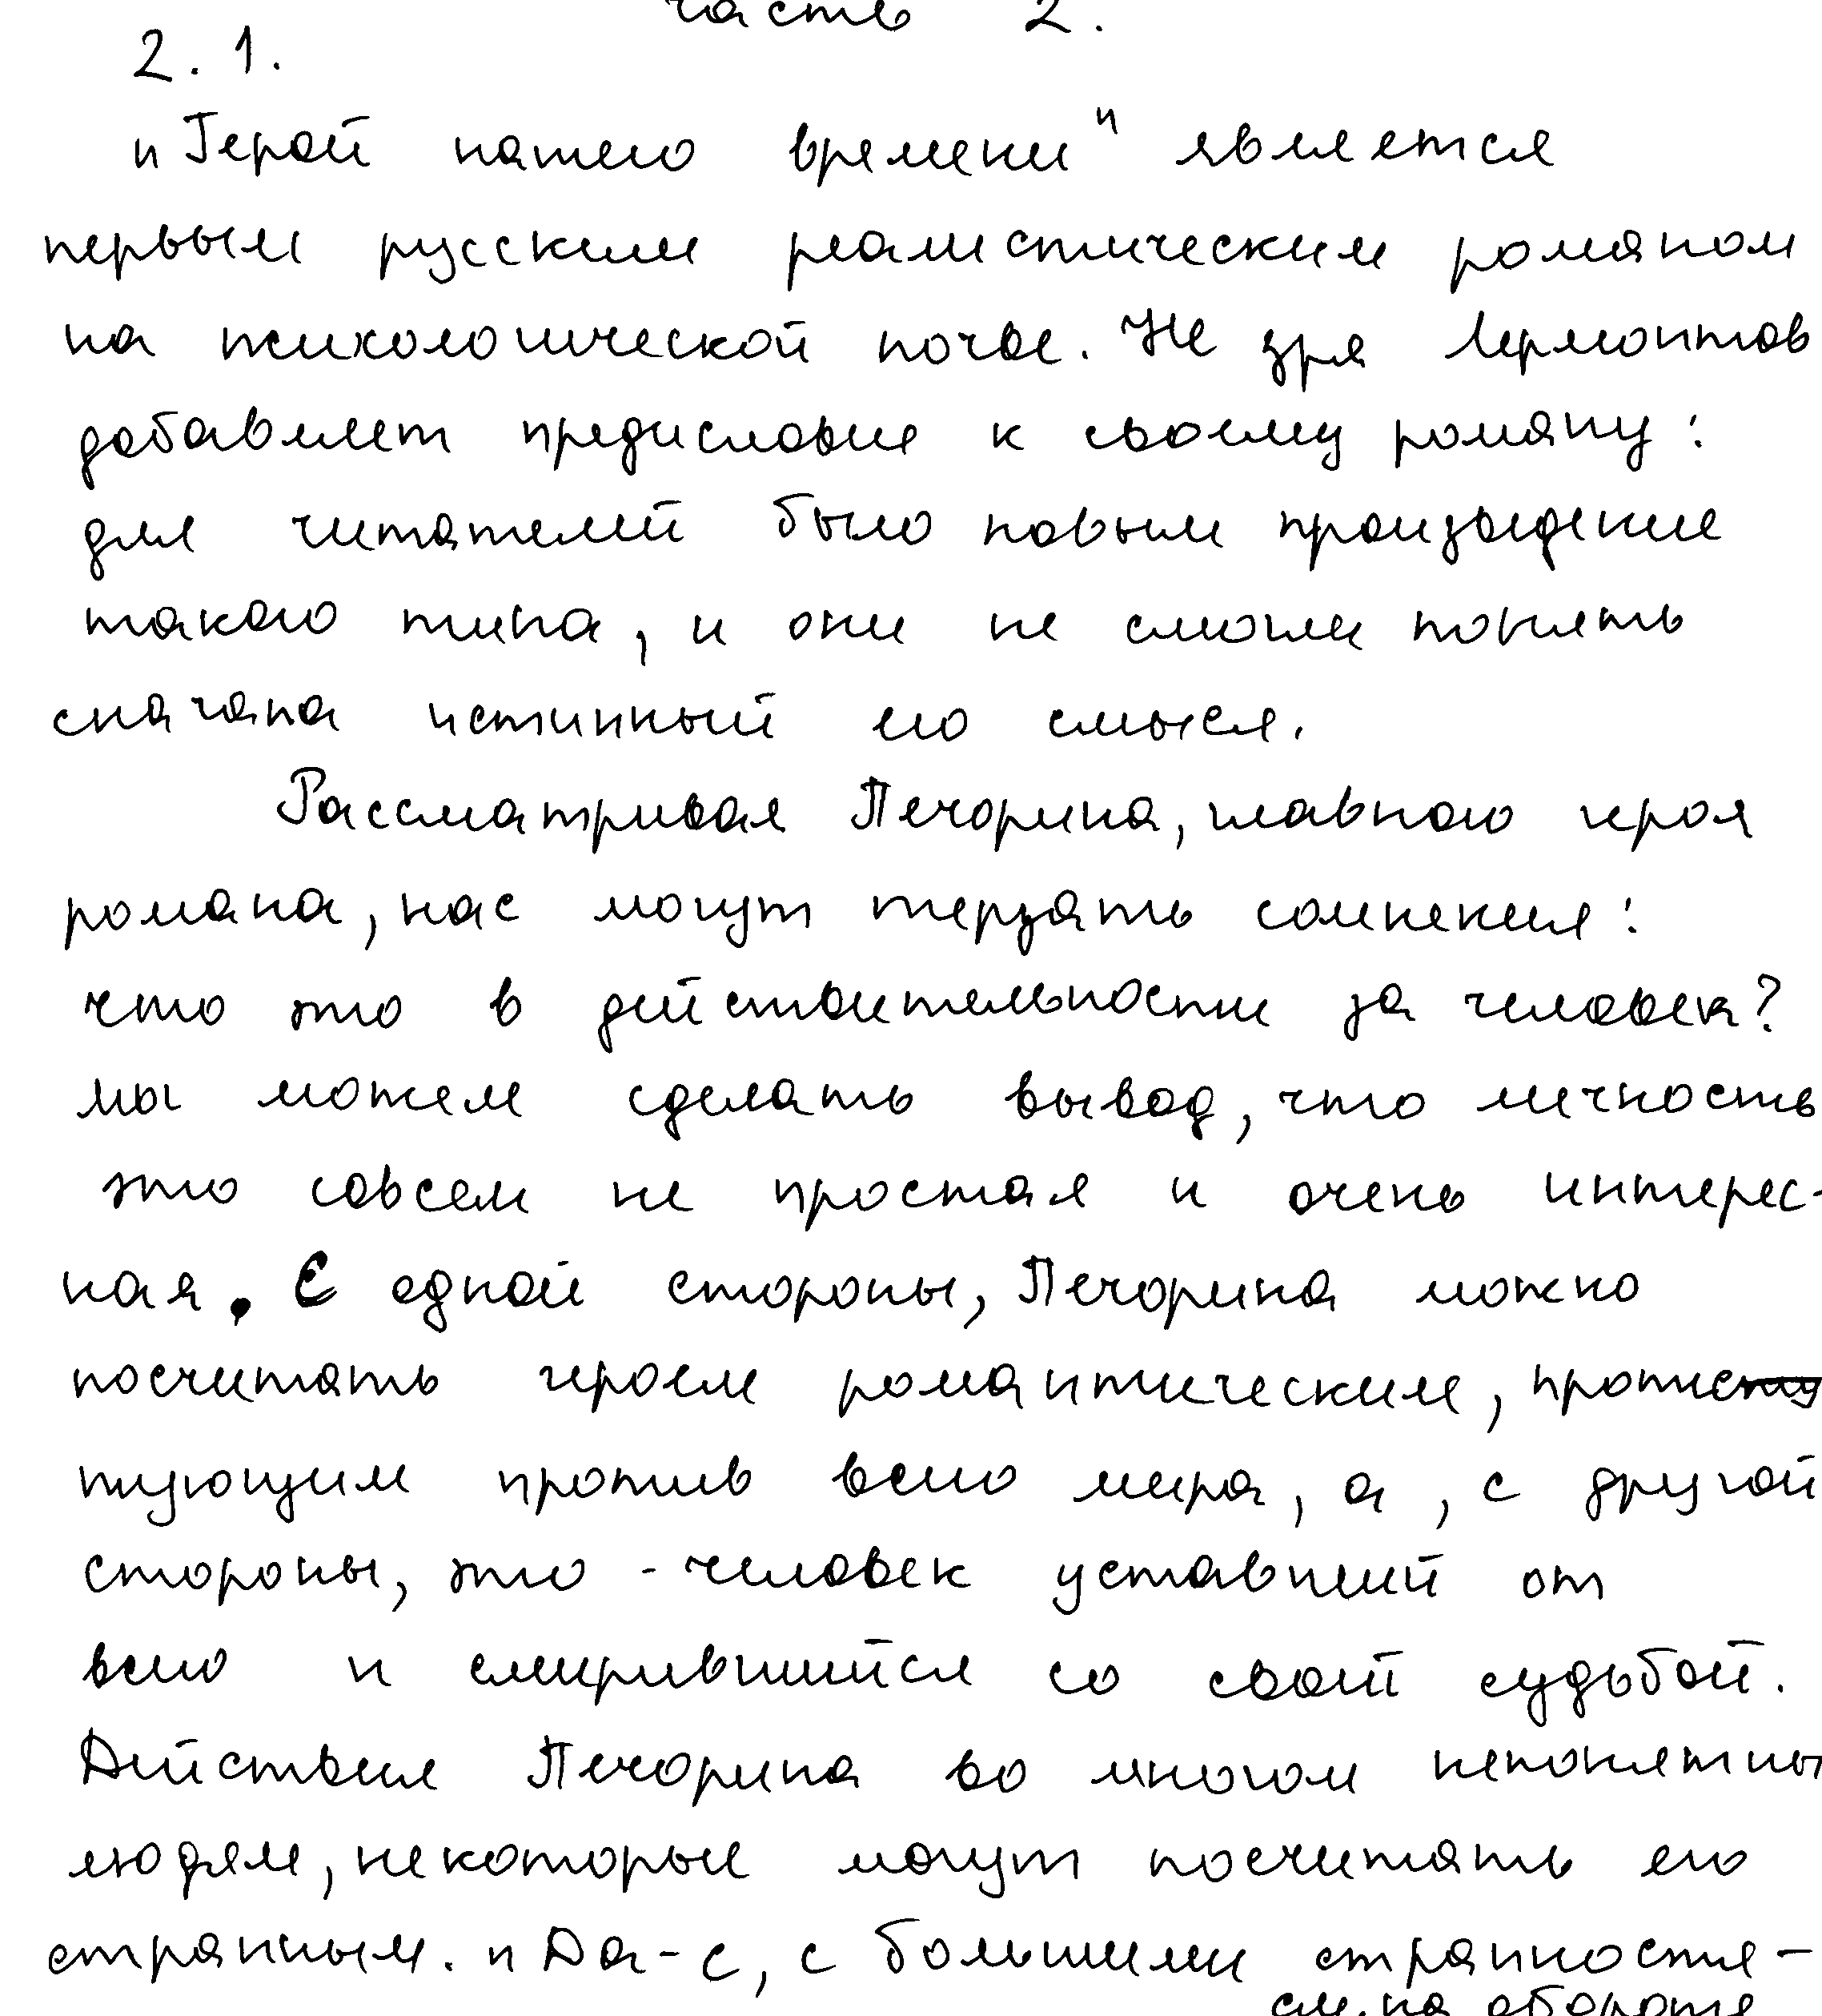 часть 2.
2.1.
"Герой нашего времени" является
первым русским реалистическим романом
на психологической почве. Не зря Лермонтов
добавляет предисловие к своему роману:
для читателей было новым произведение
такого типа, и они не смогли понять
сначала истинный его смысл.
Рассматривая Печорина, главного героя
романа, нас могут терзать сомнения:
что это в действительности за человек?
мы можем сделать вывод, что личность
это совсем не простая и очень интерес-
ная. С одной стороны, Печорина можно
посчитать героем романтическим, протес
тующим против всего мира, а, с другой
стороны, это - человек уставший от
всего и смирившийся со своей судьбой.
Действия Печорина во многом непонятны
людям, некоторые могут посчитать его
странным. "Да-с, с большими странностя-
см. на обороте